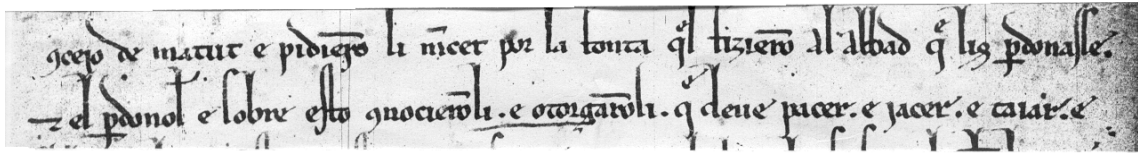 ꝯcejo de matut e pidierõ li m̃cet por la fonta q̃l fizierõ al abbad q̃ lis ꝑdonasse.
⁊ el ꝑdonol e sobre esto ꝯnocierõli . e otorgarõli . q̃ deue pacer . e jacer . e taiar . e